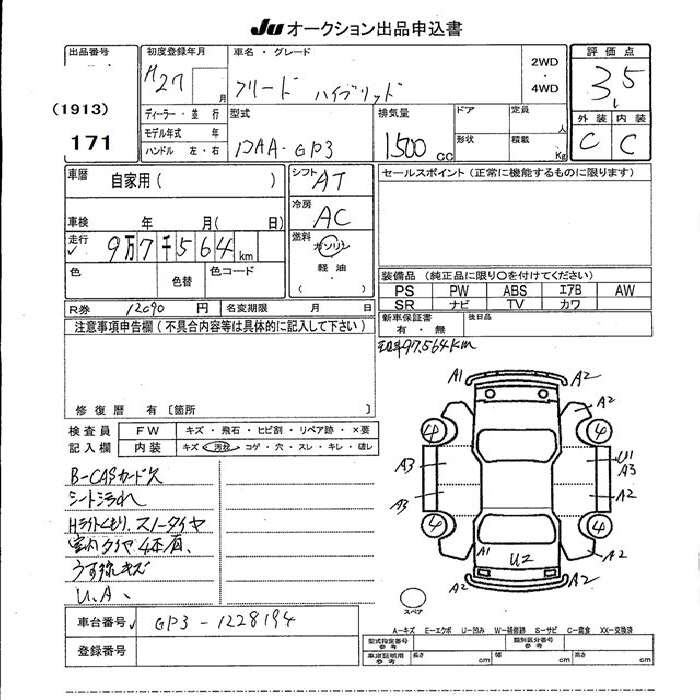 Ju オークション出品申込書
出品番号
(1913)
171
初度登録年月
H27 月
車名・グレード
フリード ハイブリッド
2WD
・
4WD
評価点
3.5
外装 内装
C C
ディーラー・並行
モデル年式 年
ハンドル 左・右
型式
DAA-GP3
排気量
1500 CC
ドア
定員
人
形状
積載
Kg
車歴
自家用( )
車検 年 月( 日)
走行
9万7千564km
色
色替
色コード
シフト AT
冷房 AC
燃料
ガソリン
軽油
( )
セールスポイント(正常に機能するものに限ります)
装備品(純正品に限り○を付けてください)
PS PW ABS エアB AW
SR ナビ TV カワ
R券 12090 円
名変期限 月 日
新車保証書
有・無
後日品
注意事項申告欄(不具合内容等は具体的に記入して下さい)
修復歴 有[箇所 ]
現車97,564km
検査員
記入欄
FW キズ・飛石・ヒビ割・リペア跡・×要
内装 キズ・汚れ・コゲ・穴・スレ・キレ・破レ
B-CASカード欠
シート汚れ
Hライトくもり、スノータイヤ
室内タイヤ4本有
うす線キズ
U.A、
A1 A2
A2
4 4
A3
U1
A3
A3
A2
4 4
A1
U2
A2
A2
A2
スペア
車台番号 GP3-1228194
登録番号
A-キズ E-エクボ U-凹み W-補修跡 S-サビ C-腐食 XX-交換済
型式指定番号
参考
類別区分番号
参考
車庫証明用
参考
長さ cm 幅 cm 高さ cm